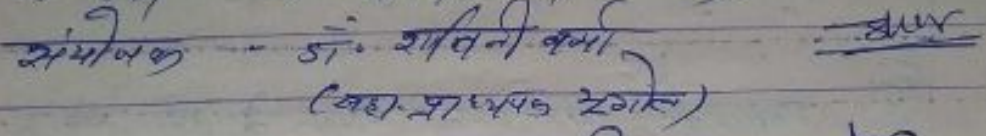 संयोजक - डॉ. शालिनी वर्मा
(सहा. प्राध्यापक भूगोल)